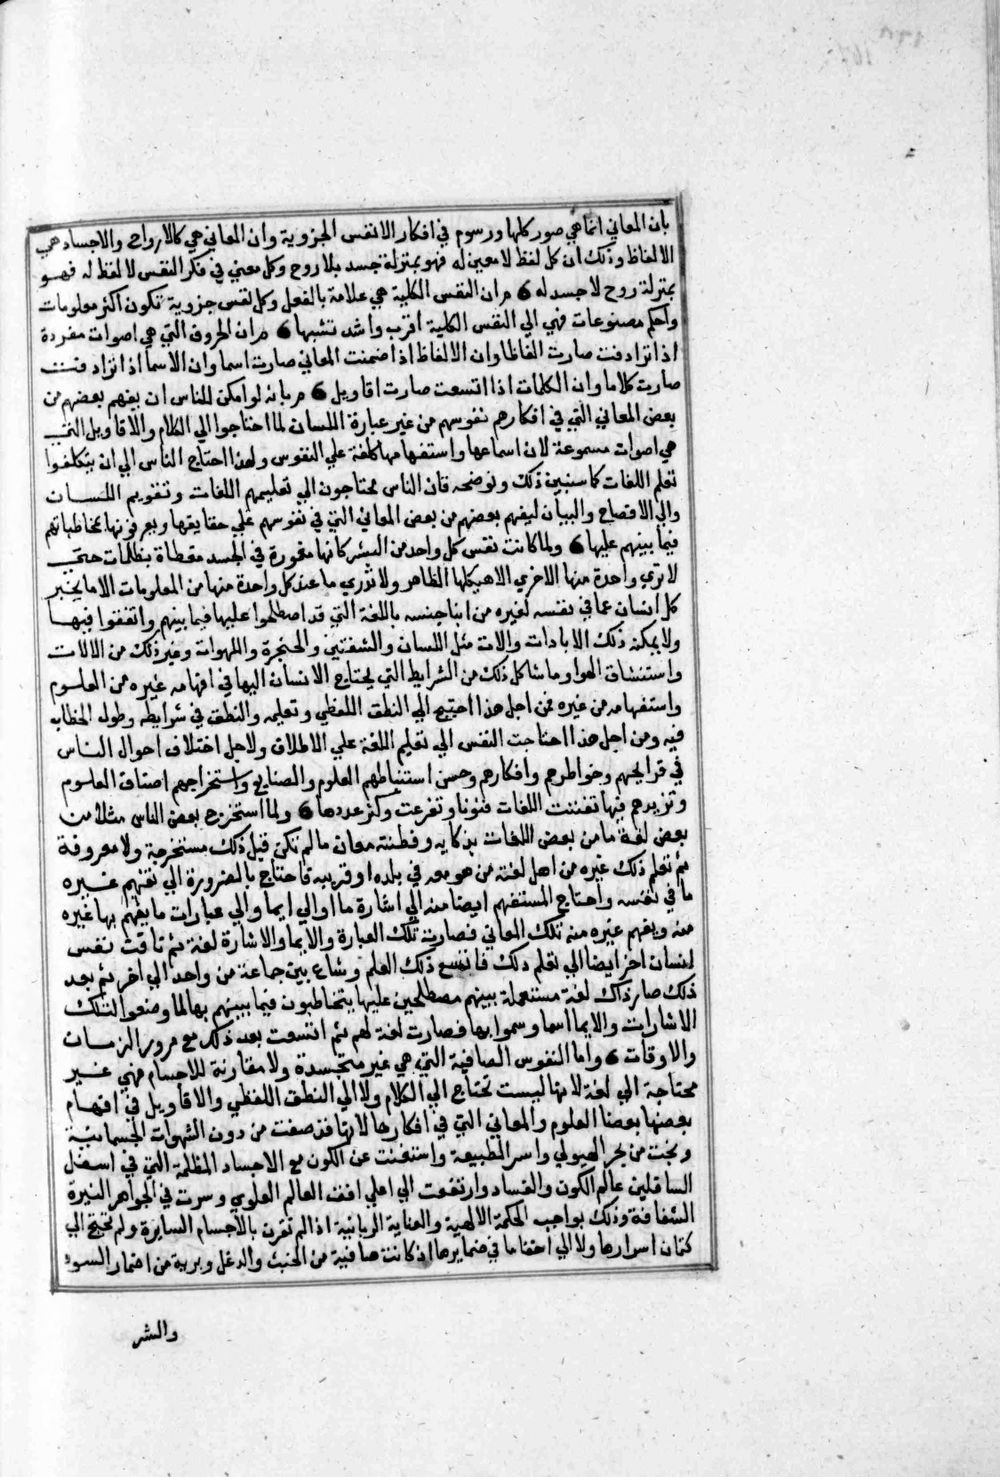 بان المعاني انما هي صور كلها ورسوم في افكار الانفس الجزوية وان المعاني هي كالارواح والاجساد هي
الالفاظ وذلك ان كل لفظ لا معني له فهو بمنزلة جسد بلا روح وكل معني في فكر النفس لا لفظ له فهو
بمنزلة روح لا جسد له 6 م ان النفس الكلية هي علامة بالفعل وكل نفس جزوية تكون اكثر معلومات
واحكم مصنوعات فهي الي النفس الكلية اقرب واشد تشبها 6 م ان الحروف التي هي اصوات مفردة
اذا تزادفت صارت الفاظا وان الالفاظ اذا ضمنت المعاني صارت اسما وان الاسما اذا تزادفت
صارت كلاما وان الكلمات اذا اتسعت صارت اقاويل 6 م بانه لو امكن للناس ان يفهم بعضهم من
بعض المعاني التي في افكارهم نفوسهم من غير عبارة اللسان لما احتاجوا الي الكلام والاقاويل التي
هي اصوات مسموعة لان اسماعها واستفهامها كلفة علي النفوس ولهذا احتاج الناس الي ان يتكلفوا
تعلم اللغات كما سنبين ذلك ونوضحه فان الناس محتاجون الي تعليمهم اللغات وتقويم اللسان
والي الافصاح والبيان ليفهم بعضهم من بعض المعاني التي في نفوسهم علي حقايقها ويعرفونها بمخاطباتهم
فيما بينهم عليها 6 ولما كانت نفس كل واحد من البشر كانها مغمورة في الجسد مغطاة بظلمات حتي
لا تري واحدة منها الاخري الا هيكلها الظاهر ولا تدري ما عند كل واحدة منها من المعلومات الا ما يخبر
كل انسان عما في نفسه لغيره من ابنا جنسه باللغة التي قد اصطلحوا عليها فيما بينهم واتفقوا فيها
ولا يمكنه ذلك الا بادات والات مثل اللسان والشفتين والحنجرة واللهوات وغير ذلك من الالات
واستنشاق الهوا وما شاكل ذلك من الشرايط التي يحتاج الانسان اليها في افهامه غيره من العلوم
واستفهامه من غيره فمن اجل هذا احتيج الي النطق اللفظي وتعليمه والنطق في شرايطه وطول الخطاب
فيه ومن اجل هذا احتاجت النفس الي تعليم اللغة علي الاطلاق ولاجل اختلاف احوال الناس
في قرايحهم وخواطرهم وافكارهم وحسن استنباطهم العلوم والصنايع واستخراجهم اصناف العلوم
وتزيدهم فيها تفننت اللغات فنونا وتفرعت وكثر عددها 6 ولما استخرج بعض الناس مثلا من
بعض لغة ما من بعض اللغات بذكايه وفطنته معان ما لم تكن قبل ذلك مستخرجة ولا معروفة
ثم تعلم ذلك غيره من اهل لغته من هو معه في بلده او قريبه فاحتاج بالضرورة الي تفهم غيره
ما في نفسه واحتاج المستفهم ايضا منه الي اشارة ما او الي ايما والي عبارات ما يفهم بها غيره
منه ويفهم غيره منه تلك المعاني فصارت تلك العبارة والايما والاشارة لغة ثم تاقت نفس
انسان اخر ايضا الي تعلم ذلك فاتسع ذلك العلم وشاع بين جماعة من واحد الي اخر ثم بعد
ذلك صار ذلك لغة مستعملة بينهم مصطلحين عليها يتخاطبون فيما بينهم بها لما وضعوا لتلك
الاشارات والايما اسما وسموا بها فصارت لغة لهم ثم اتسعت بعد ذلك مع مرور الزمان
والاوقات 6 واما النفوس الصافية التي هي غير متجسدة ولا مقارنة للاجسام فهي غير
محتاجة الي لغة لانها ليست تحتاج الي الكلام ولا الي النطق اللفظي والاقاويل في افهام
بعضها بعضا العلوم والمعاني التي في افكارها لانها قد صفت من دون الشهوات الجسمانية
ونجت من بحر الهيولي واسر الطبيعة واستغنت عن الكون مع الاجساد المظلمة التي في اسفل
السافلين عالم الكون والفساد وارتفعت الي اعلي افق العالم العلوي وسرت في الجواهر النيرة
الشفافة وذلك بواجب الحكمة الالهية والعناية الربانية اذ لم تقرن بالاجسام السايرة ولم تحتج الي
كتمان اسرارها ولا الي اخفا ما في ضمايرها اذ كانت صافية من الخبث والدغل وبرية من اضمار السوء
والشر